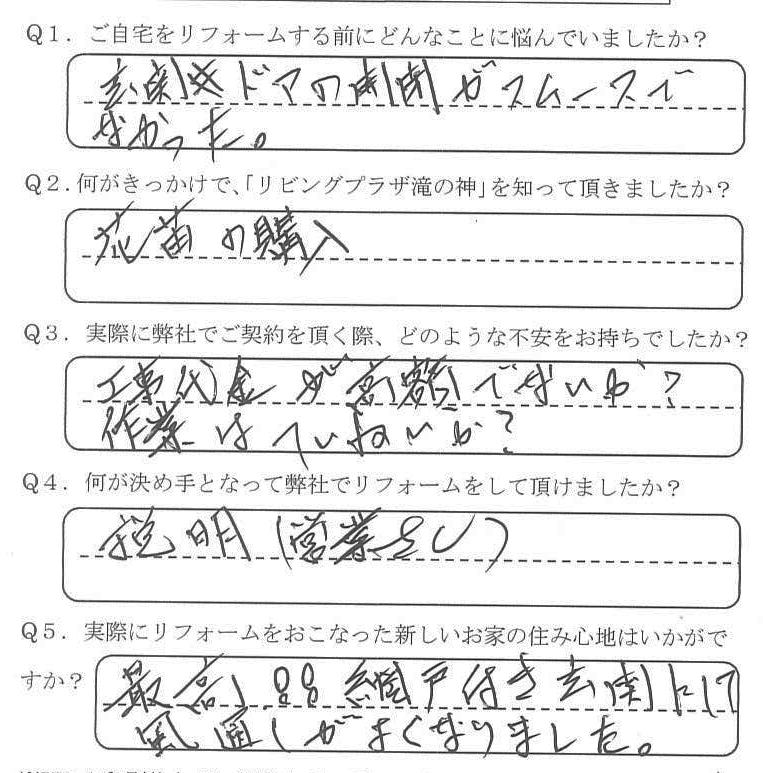 Q1．ご自宅をリフォームする前にどんなことに悩んでいましたか？
玄関ドアの開閉がスムースで
なかった。
Q2．何がきっかけで、「リビングプラザ滝の神」を知って頂きましたか？
花苗の購入
Q3．実際に弊社でご契約を頂く際、どのような不安をお持ちでしたか？
工事代金が高額でないか？
作業はていねいか？
Q4．何が決め手となって弊社でリフォームをして頂けましたか？
説明（営業さん）
Q5．実際にリフォームをおこなった新しいお家の住み心地はいかがで
すか？
最高 網戸付き玄関
風通しがよくなりました。